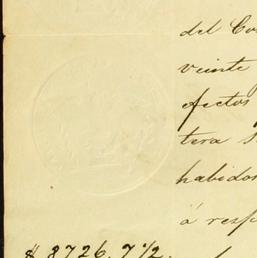 del Co
veinte
efectos
tera s
habidos
á resp
$ 8726,7½.